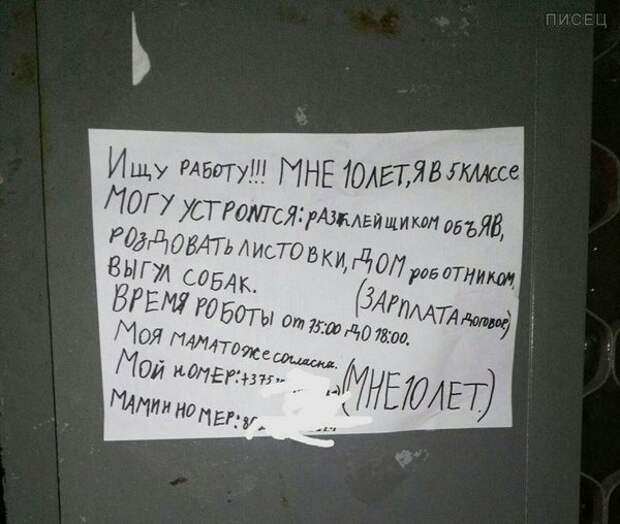 ПИСЕЦ
Ищу РАБОТУ!!! МНЕ 10ЛЕТ, Я В 5 КЛАССЕ
МОГУ УСТРОИТСЯ: РАЗКЛЕЙЩИКОМ ОБЪЯВ,
РОЗДОВАТЬ ЛИСТОВКИ, ДОМ РОБОТНИКОМ,
ВЫГУЛ СОБАК.
(ЗАРПЛАТА договое)
ВРЕМЯ РОБОТЫ от 15:00 ДО 18:00.
МОЯ МАМА ТОЖЕ согласна.
МОЙ НОМЕР: +375
(МНЕ 10 ЛЕТ.)
МАМИН НОМЕР: 8